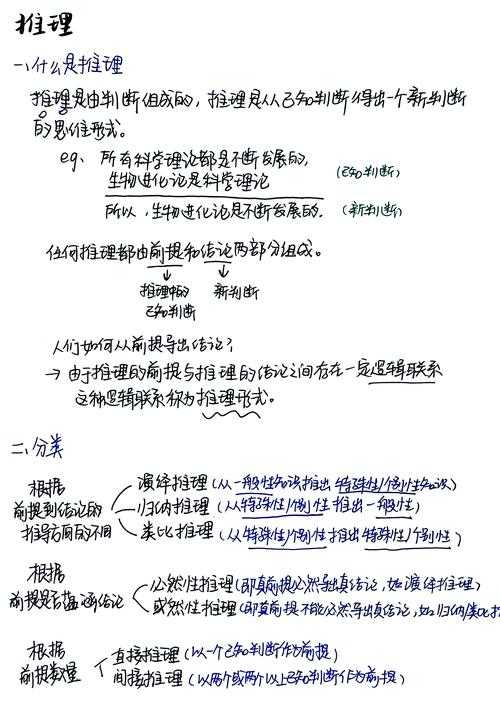 推理
一、什么是推理
推理是由判断组成的，推理是从已知判断得出一个新判断
的思维形式。
eg、所有科学理论都是不断发展的，
生物进化论是科学理论 (已知判断)
所以，生物进化论是不断发展的。 (新判断)
任何推理都由前提和结论两部分组成。
↓ ↓
推理中的 新判断
已知判断
人们如何从前提导出结论？
→ 由于推理的前提与推理的结论之间存在一定逻辑联系
这种逻辑联系称为推理形式。
二、分类
根据
前提到结论的
推导方向的不同
演绎推理（从一般性知识推出特殊性/个别性知识）
归纳推理（从特殊性/个别性推出一般性）
类比推理（从特殊性/个别性推出特殊性/个别性）
根据
前提是否蕴涵结论
必然性推理（即真前提必然导真结论，如演绎推理）
或然性推理（即真前提不能必然导出真结论，如归纳/类比
根据
前提数量
直接推理（以一个已知判断作为前提）
间接推理（以两个或两个以上已知判断作为前提）